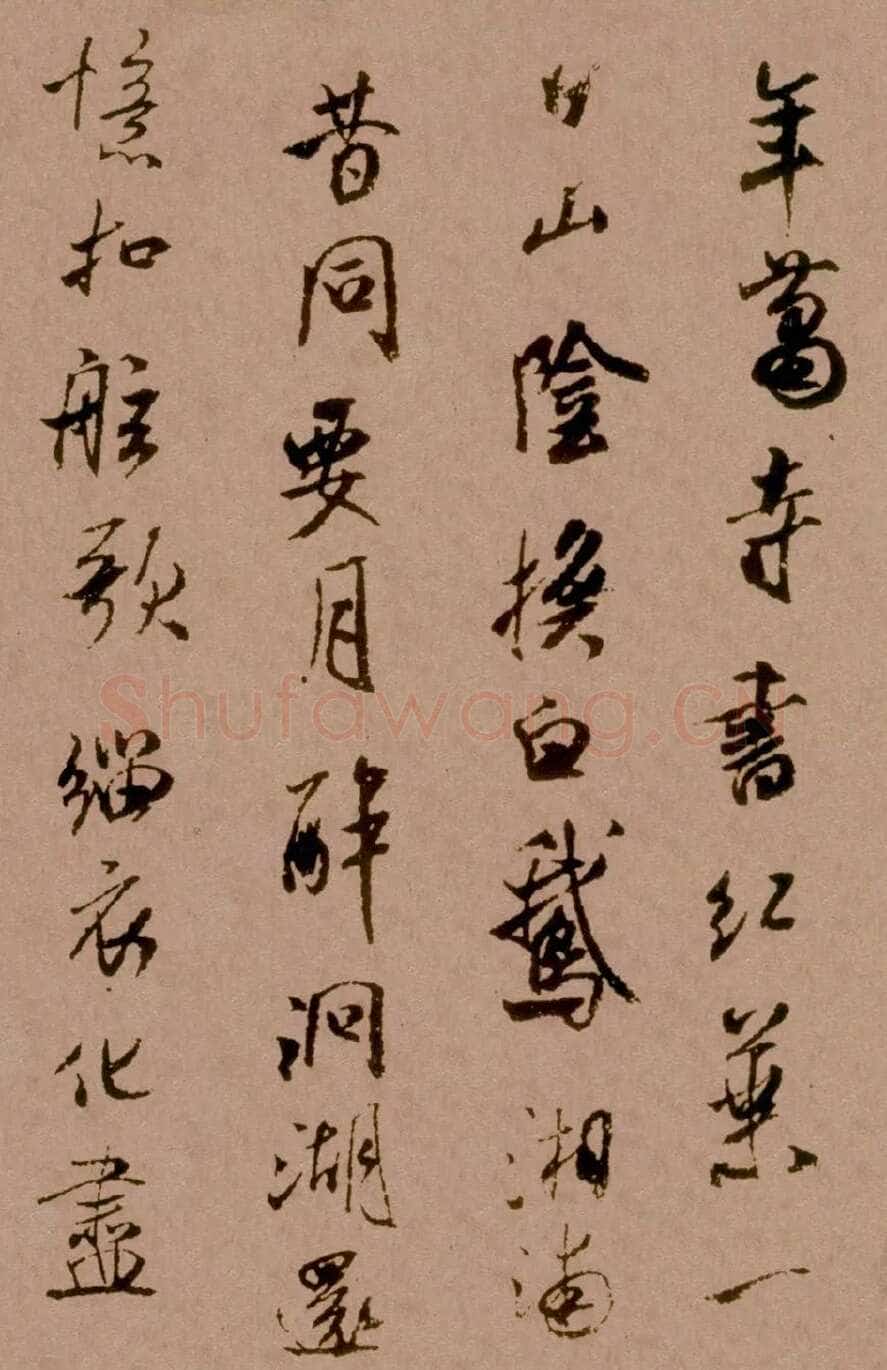 年萬寺書紅葉一
日山陰換白鵝湘浦
昔同要月醉洞湖還
憶扣舷歌緇衣化盡
Shufawang.cn